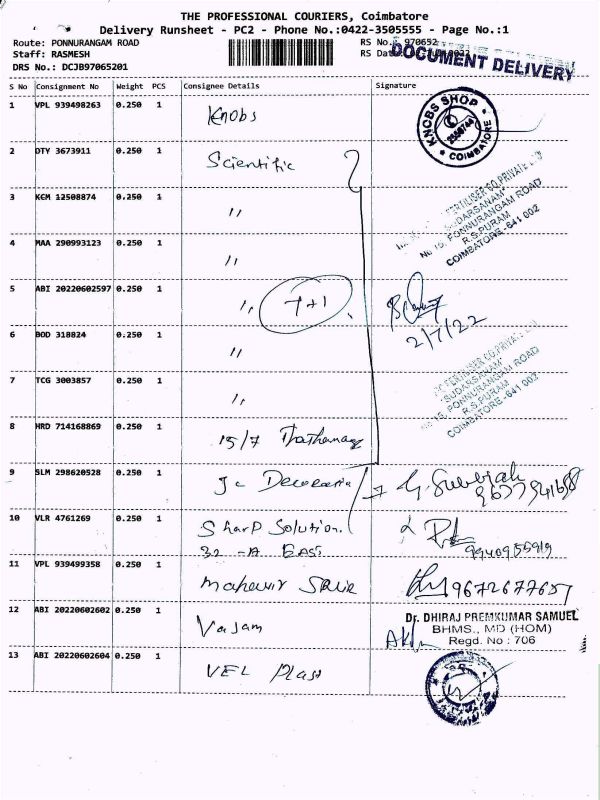 THE PROFESSIONAL COURIERS, Coimbatore
Delivery Runsheet - PC2 - Phone No.:0422-3505555 - Page No.:1
Route: PONNURANGAM ROAD
RS No.: 970652
Staff: RASMESH
RS Da
DOCUMENT DELIVERY
DRS No.: DCJB97065201
S No Consignment No Weight PCS Consignee Details Signature
1 VPL 939498263 0.250 1 Knobs
KNOBS SHOP
COIMBATORE
2 DTY 3673911 0.250 1 Scientific
3 KCM 12508874 0.250 1 "
FERTILISER CO. PRIVATE
"SUDARSANAM"
No 15, PONNURANGAM ROAD
R.S.PURAM
COIMBATORE-641 002
4 MAA 290993123 0.250 1 "
5 ABI 20220602597 0.250 1 " 7+1
2/7/22
6 BOD 318824 0.250 1 "
7 TCG 3003857 0.250 1 "
FERTILISER CO. PRIVATE
"SUDARSANAM"
No 15, PONNURANGAM ROAD
R.S.PURAM
COIMBATORE-641 002
8 HRD 714168869 0.250 1 15/7
9 SLM 298620528 0.250 1
10 VLR 4761269 0.250 1 Sharp Solution.
32 -A EAST
9940955919
11 VPL 939499358 0.250 1 Mahavir
9672677657
12 ABI 20220602602 0.250 1 Vasam
Dr. DHIRAJ PREMKUMAR SAMUEL
BHMS., MD (HOM)
Regd. No : 706
13 ABI 20220602604 0.250 1 VEL Plast